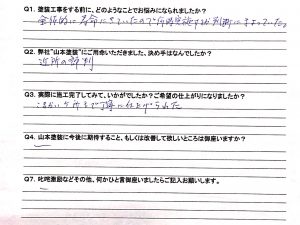 Q1. 塗装工事をする前に、どのようなことでお悩みになられましたか?
全体的に寿命にきていたので何時実施するか判断にまよっていた。
Q2. 弊社"山本塗装"にご用命いただきました、決め手はなんでしたか?
近所の評判
Q3. 実際に施工完了してみて、いかがでしたか?ご希望の仕上がりになりましたか?
細かい所まで丁寧に仕上げられた
Q4. 山本塗装に今後に期待すること、もしくは改善して欲しいところは御座いますか?
Q7. 叱咤激励などその他、何かひと言御座いましたらご記入お願します。